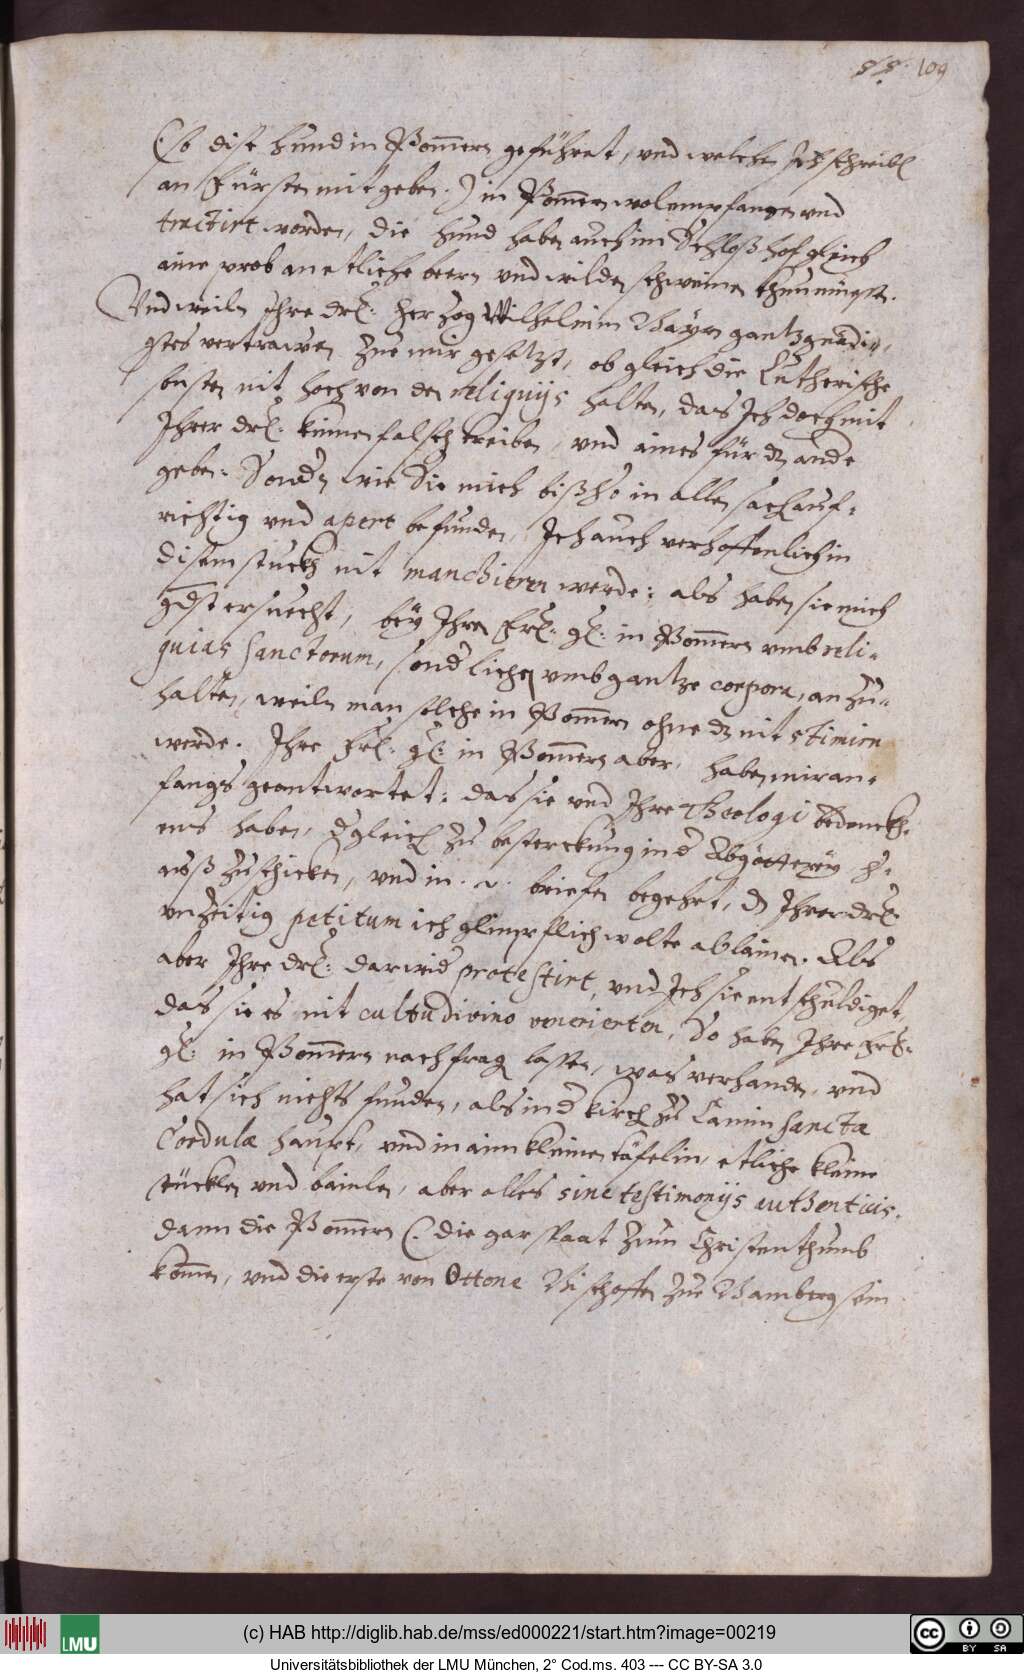 109
(so dise hund in Pom̄ern geführet, vnd welchen Ich schreiben
an Fürsten mitgeben.) in Pom̄ern wol empfangen vnd
tractirt worden, die hund haben auch im Schloßhof gleich
aine prob an etliche beern vnd wilden schweinen thun müssen.
Vnd weiln Ihre drl: Herzog Wilhelm in Bayrn gantz gnedi-
gstes vertrawen zue mir gesetzt, ob gleich die Lutherische
sonsten nit hoch von den reliquijs halten, das Ich doch mit
Ihrer drl: keinen falsch treiben, vnd aines für dz ander
geben: Sondern wie Sie mich bißhero in allen sachen auf-
richtig vnd apert befunden, Ich auch verhoffenlich in
disem stuckh nit manchiren werde: als haben sie mich
gdst ersuecht, bey Ihren Frl: gl: in Pom̄ern vmb reli-
quias sanctorum, sonderlichen vmb gantze corpora, an zu-
halten, weiln man solche in Pom̄ern ohne dz nit stimirn
werde. Ihre Frl: gl: in Pom̄ern aber, haben mir an-
fangs geantwortet: das sie vnd Ihre Theologi bedenckh-
nus haben, dergleichen zu besterckung in der Abgötterey h-
auß zuschicken, vnd in briefen begehrt, dz Ihrer drl:
vnzeitig petitum ich glimpflich wolte ablainen. Als
aber Ihre drl: darwider protestirt, vnd Ich sie entschuldiget,
das sie es nit cultu divino venerierten, So haben Ihre Frl:
gl: in Pom̄ern nachfragen lassen, was verhanden, vnd
hat sich nichts funden, als in der kirchen zu Camin sanctæ
Cordulæ haupt, vnd in aim kleinen täfelin, etliche kleine
stücklen vnd bainlen, aber alles sine testimonijs authenticis.
dann die Pom̄ern (die gar spaat zum Christenthumb
kom̄en, vnd die erste von Ottone Bischoffen zue Bamberg sein
(c) HAB http://diglib.hab.de/mss/ed000221/start.htm?image=00219
LMU
CC BY SA
Universitätsbibliothek der LMU München, 2° Cod.ms. 403 --- CC BY-SA 3.0